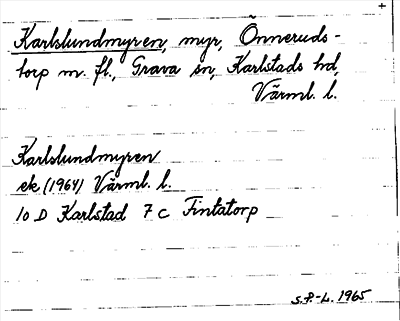 Karlslundmyren, myr, Önneruds-
torp m. fl., Grava sn, Karlstads hd,
Värml. l.
Karlslundmyren
ek (1964) Värml. l.
10 D Karlstad 7 c Fintatorp
S.P.-L. 1965